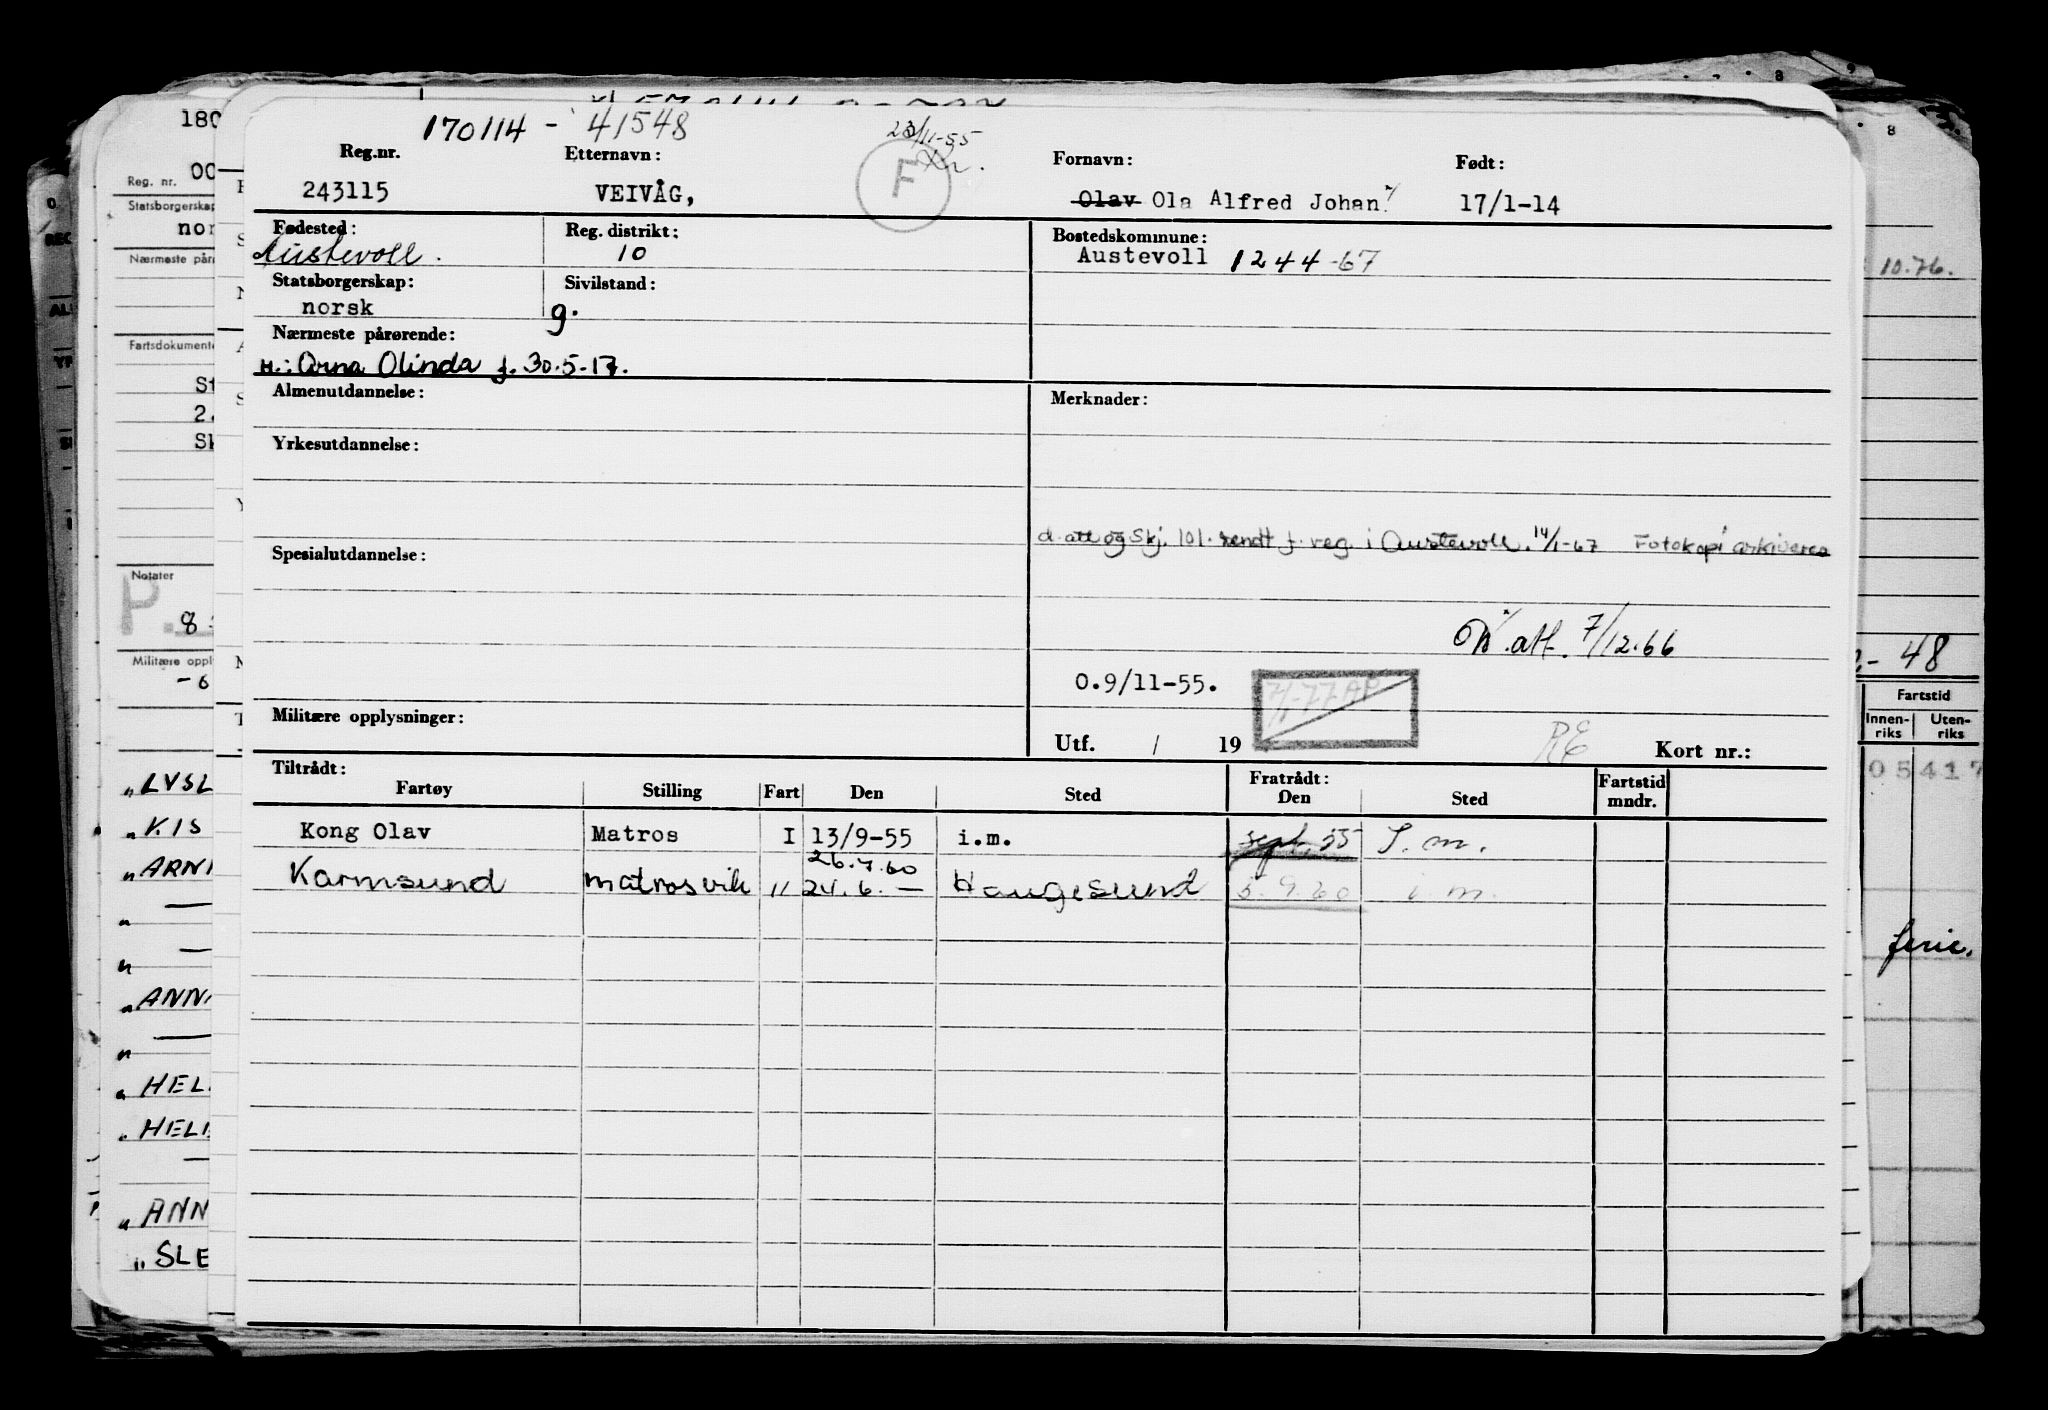 170114 - 41548
23/11-55
F
Reg.nr. Etternavn: Fornavn: Født:
243115 VEIVÅG, Olav Ola Alfred Johan 17/1-14
Fødested: Reg. distrikt: Bostedskommune:
Austevoll. 10 Austevoll 1244-67
Statsborgerskap: Sivilstand:
norsk g.
Nærmeste pårørende:
H.: Arna Olinda f. 30.5.17.
Almenutdannelse: Merknader:
Yrkesutdannelse:
d. att og Skj. 101. sendt f. reg. i Austevoll. 14/1-67 Fotokopi arkiveres
Spesialutdannelse:
att. 7/12.66
0.9/11-55.
7/1-77 AP
Militære opplysninger:
Utf. / 19 RE Kort nr.:
Tiltrådt: Fratrådt:
Fartøy Stilling Fart Den Sted Den Sted Fartstid mndr.
Kong Olav Matros I 13/9-55 i.m. sept. 55 I.m.
26.7.60
Karmsund matrosvik " 24.6. — Haugesund 5.9.60 i m.
180
00
Reg. nr.
Statsborgerskap
nor
Nærmeste pår
Fartsdokumente
St
2.
Sk
Notater
P.
8
Militære oppl
-6
"LVSL
"KIS
"ARNI
"
"
"ANN
"
"HEL
"HELI
"ANN
"SLE
8
10.76.
- 48
Fartstid
Innen-riks Uten-riks
05417
ferie.